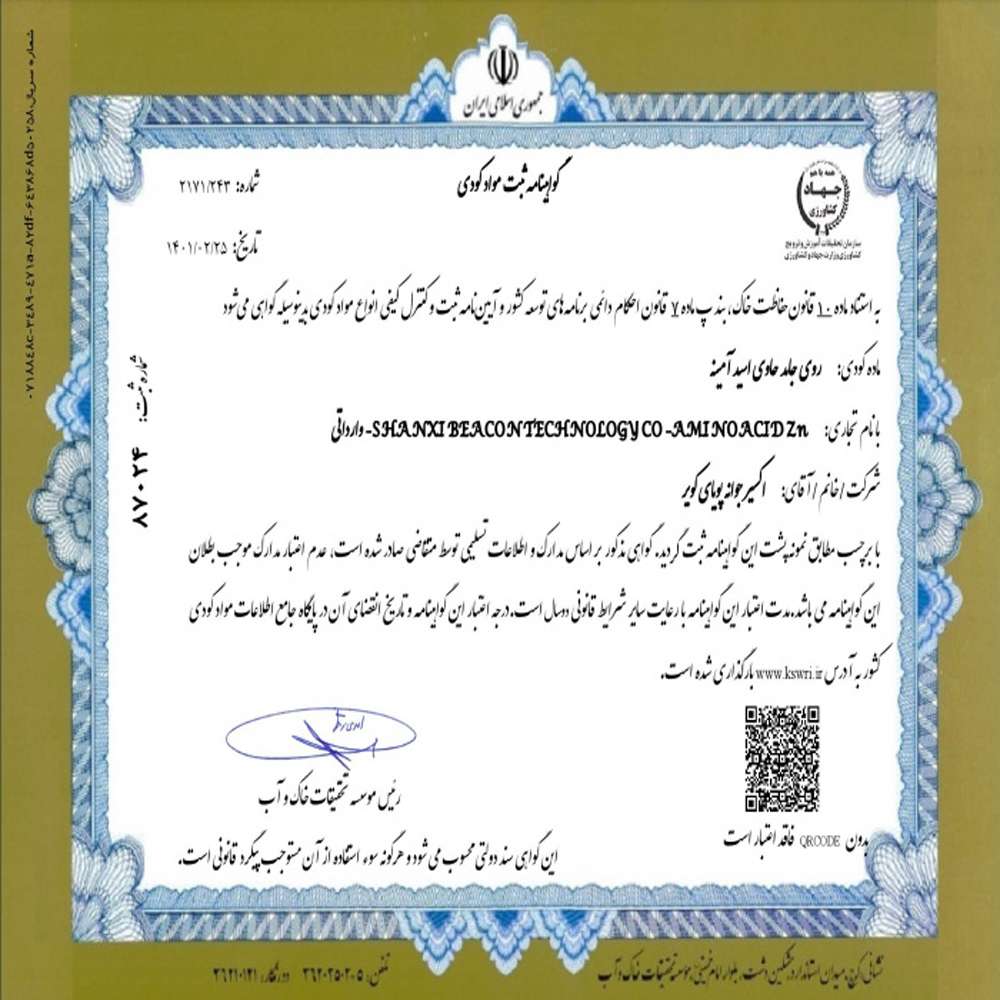 جمهوری اسلامی ایران
همه با هم
جهاد
کشاورزی
سازمان تحقیقات آموزش و ترویج
کشاورزی وزارت جهاد کشاورزی
گواهینامه ثبت مواد کودی
شماره: ۲۱۷۱/۲۴۳
تاریخ: ۱۴۰۱/۰۲/۲۵
به استناد ماده ۱۰ قانون حفاظت خاک، بند پ ماده ۷ قانون احکام دائمی برنامه های توسعه کشور و آیین نامه ثبت و کنترل کیفی انواع مواد کودی بدینوسیله گواهی می شود
ماده کودی: روی جامد حاوی اسید آمینه
با نام تجاری: SHANXI BEACON TECHNOLOGY CO -AMINO ACID Zn- وارداتی
شرکت / خانم / آقای: اکسیر جوانه پویای کویر
با برچسب مطابق نمونه پشت این گواهینامه ثبت گردید. گواهی مذکور بر اساس مدارک و اطلاعات تسلیمی توسط متقاضی صادر شده است، عدم اعتبار مدارک موجب بطلان
این گواهینامه می باشد. مدت اعتبار این گواهینامه با رعایت سایر شرایط قانونی دو سال است. درجه اعتبار این گواهینامه و تاریخ انقضای آن در پایگاه جامع اطلاعات مواد کودی
کشور به آدرس www.kswri.ir بارگذاری شده است.
شماره ثبت: ۸۷۰۲۴
رئیس موسسه تحقیقات خاک و آب
بدون QRCODE فاقد اعتبار است
این گواهی سند دولتی محسوب می شود و هرگونه سوء استفاده از آن مستوجب پیگرد قانونی است.
نشانی: کرج، میدان استاندارد، مشکین دشت، بلوار امام خمینی، موسسه تحقیقات خاک و آب
تلفن: ۵-۳۶۲۰۲۵۰۲ دورنگار: ۳۶۲۱۰۱۲۱